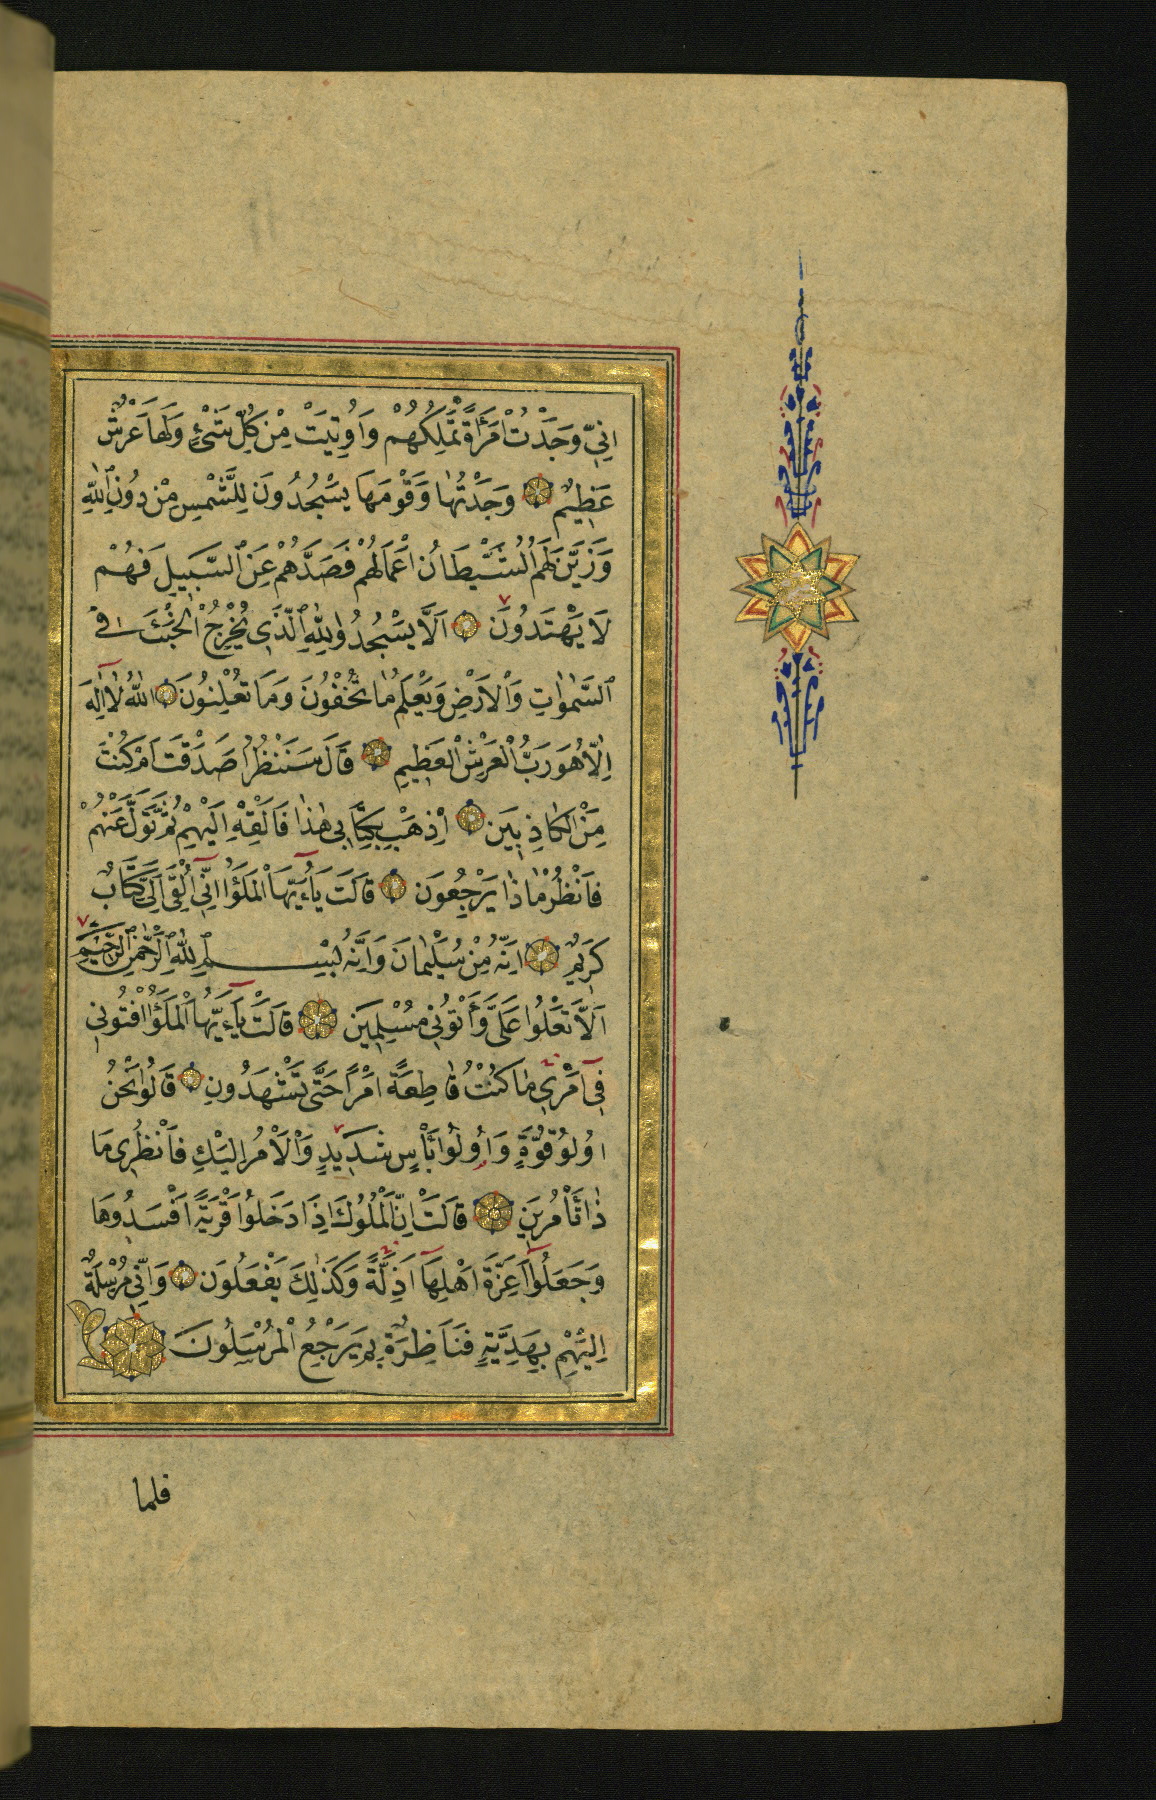 اِنِّي وَجَدْتُ امْرَأَةً تَمْلِكُهُمْ وَاُوتِيَتْ مِنْ كُلِّ شَيْءٍ وَلَهَا عَرْشٌ
عَظِيمٌ وَجَدْتُهَا وَقَوْمَهَا يَسْجُدُونَ لِلشَّمْسِ مِنْ دُونِ اللّٰهِ
وَزَيَّنَ لَهُمُ الشَّيْطَانُ اَعْمَالَهُمْ فَصَدَّهُمْ عَنِ السَّبِيلِ فَهُمْ
لَا يَهْتَدُونَ اَلَّا يَسْجُدُوا لِلّٰهِ الَّذِي يُخْرِجُ الْخَبْءَ فِي
السَّمٰوَاتِ وَالْاَرْضِ وَيَعْلَمُ مَا تُخْفُونَ وَمَا تُعْلِنُونَ اَللّٰهُ لَا اِلٰهَ
اِلَّا هُوَ رَبُّ الْعَرْشِ الْعَظِيمِ قَالَ سَنَنْظُرُ اَصَدَقْتَ اَمْ كُنْتَ
مِنَ الْكَاذِبِينَ اِذْهَبْ بِكِتَابِي هٰذَا فَاَلْقِهْ اِلَيْهِمْ ثُمَّ تَوَلَّ عَنْهُمْ
فَانْظُرْ مَاذَا يَرْجِعُونَ قَالَتْ يَاءَيُّهَا الْمَلَؤُا اِنِّي اُلْقِيَ اِلَيَّ كِتَابٌ
كَرِيمٌ اِنَّهُ مِنْ سُلَيْمَانَ وَاِنَّهُ بِسْمِ اللّٰهِ الرَّحْمٰنِ الرَّحِيمِ
اَلَّا تَعْلُوا عَلَيَّ وَأْتُونِي مُسْلِمِينَ قَالَتْ يَاءَيُّهَا الْمَلَؤُا اَفْتُونِي
فِي اَمْرِي مَا كُنْتُ قَاطِعَةً اَمْرًا حَتَّى تَشْهَدُونِ قَالُوا نَحْنُ
اُولُوا قُوَّةٍ وَاُولُوا بَأْسٍ شَدِيدٍ وَالْاَمْرُ اِلَيْكِ فَانْظُرِي مَا
ذَا تَأْمُرِينَ قَالَتْ اِنَّ الْمُلُوكَ اِذَا دَخَلُوا قَرْيَةً اَفْسَدُوهَا
وَجَعَلُوا اَعِزَّةَ اَهْلِهَا اَذِلَّةً وَكَذٰلِكَ يَفْعَلُونَ وَاِنِّي مُرْسِلَةٌ
اِلَيْهِمْ بِهَدِيَّةٍ فَنَاظِرَةٌ بِمَ يَرْجِعُ الْمُرْسَلُونَ
فلما